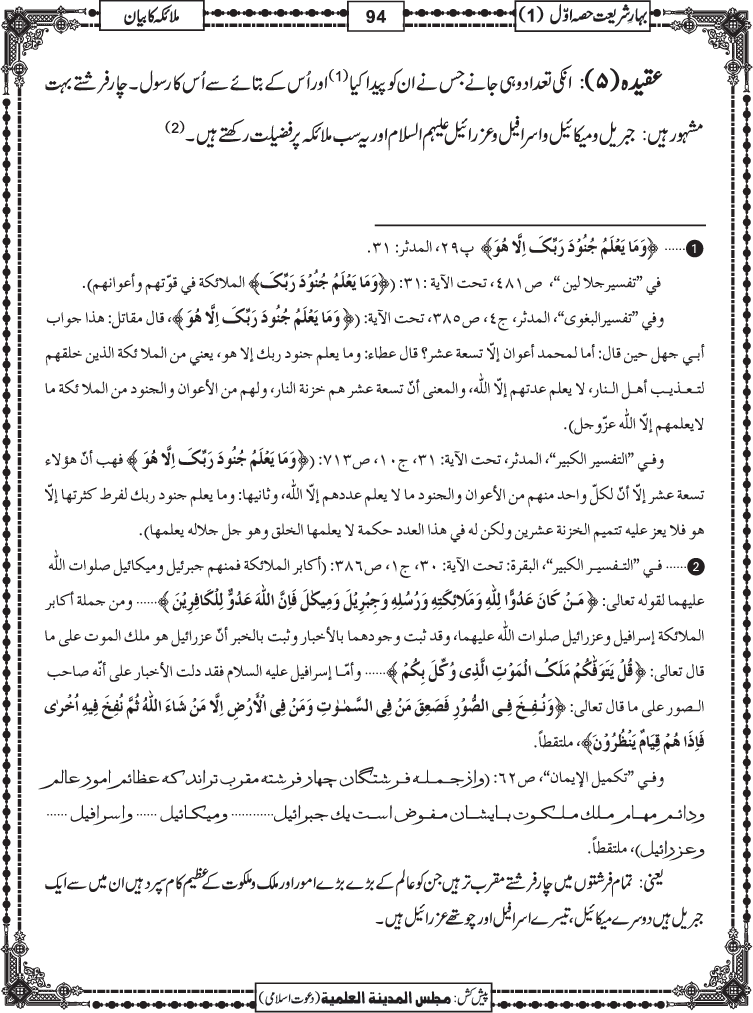 بہارِ شریعت حصہ اوّل (1)
94
ملائکہ کا بیان
عقیدہ (۵): انکی تعداد وہی جانے جس نے ان کو پیدا کیا(1) اور اُس کے بتائے سے اُس کا رسول۔ چار فرشتے بہت
مشہور ہیں: جبریل و میکائیل و اسرافیل و عزرائیل علیہم السلام اور یہ سب ملائکہ پر فضیلت رکھتے ہیں۔(2)
1 ...... ﴿وَمَا یَعْلَمُ جُنُوْدَ رَبِّکَ اِلَّا هُوَ﴾ پ۲۹، المدثر: ۳۱.
في ”تفسیر جلا لین“، ص۴۸۱، تحت الآیة: ۳۱: (﴿وَمَا یَعْلَمُ جُنُوْدَ رَبِّکَ﴾ الملائکة في قوّتهم وأعوانهم).
وفي ”تفسیر البغوی“، المدثر، ج٤، ص۳۸٥، تحت الآیة: (﴿وَمَا یَعْلَمُ جُنُوْدَ رَبِّکَ اِلَّا هُوَ﴾، قال مقاتل: هذا جواب
أبي جهل حین قال: أما لمحمد أعوان إلّا تسعة عشر؟ قال عطاء: وما یعلم جنود ربك إلا هو، یعني من الملا ئکة الذین خلقهم
لتـعـذیـب أهـل الـنار، لا یعلم عدتهم إلّا اللّٰه، والمعنی أنّ تسعة عشر هم خزنة النار، ولهم من الأعوان والجنود من الملا ئکة ما
لایعلمهم إلّا اللّٰه عزّوجل).
وفـي ”التفسیر الکبیر“، المدثر، تحت الآیة: ۳۱، ج۱۰، ص۷۱۳: (﴿وَمَا یَعْلَمُ جُنُودَ رَبِّکَ اِلَّا هُوَ﴾ فهب أنّ هؤلاء
تسعة عشر إلّا أنّ لکلّ واحد منهم من الأعوان والجنود ما لا یعلم عددهم إلّا اللّٰه، وثانیها: وما یعلم جنود ربك لفرط کثرتها إلّا
هو فلا یعز علیه تتمیم الخزنة عشرین ولکن له في هذا العدد حکمة لا یعلمها الخلق وهو جل جلاله یعلمها).
2 ...... فـي ”التـفسیـر الکبیر“، البقرة: تحت الآیة: ۳۰، ج۱، ص۳۸٦: (أکابر الملائکة فمنهم جبرئیل ومیکائیل صلوات اللّٰه
علیهما لقوله تعالی: ﴿مَـنْ کَانَ عَدُوًّا لِلّٰهِ وَمَلَائِکَتِهِ وَرُسُلِهِ وَجِبْرِیْلَ وَمِیکٰلَ فَاِنَّ اللّٰهَ عَدُوٌّ لِلْکَافِرِیْنَ﴾...... ومن جملة أکابر
الملائکة إسرافیل وعزرائیل صلوات اللّٰه علیهما، وقد ثبت وجودهما بالأخبار وثبت بالخبر أنّ عزرائیل هو ملك الموت علی ما
قال تعالی: ﴿قُلْ یَتَوَفّٰکُمْ مَلَکُ الْمَوْتِ الَّذِی وُکِّلَ بِکُمْ﴾...... وأمّـا إسرافیل علیه السلام فقد دلت الأخبار علی أنّه صاحب
الـصور علی ما قال تعالی: ﴿وَنُـفِـخَ فِـی الصُّوْرِ فَصَعِقَ مَنْ فِی السَّمٰوٰتِ وَمَنْ فِی الْاَرْضِ اِلَّا مَنْ شَاءَ اللّٰهُ ثُمَّ نُفِخَ فِیهِ اُخْرٰی
فَاِذَا هُمْ قِیَامٌ یَنْظُرُوْنَ﴾، ملتقطاً.
وفـي ”تکمیل الإیمان“، ص٦۲: (وازجـمـلـه فـرشتگان چهار فرشته مقرب تراند که عظائم امور عالم
ودائـم مهام مـلك مـلـکوت بـایشـان مـفـوض اسـت یك جبرائیل............ ومیکائیل ...... واسرافیل ......
وعزرائیل)، ملتقطاً.
یعنی: تمام فرشتوں میں چار فرشتے مقرب تر ہیں جن کو عالم کے بڑے بڑے امور اور ملک و ملکوت کے عظیم کام سپرد ہیں ان میں سے ایک
جبریل ہیں دوسرے میکائیل، تیسرے اسرافیل اور چوتھے عزرائیل ہیں۔
پیش کش: مجلس المدینة العلمیة (دعوت اسلامی)